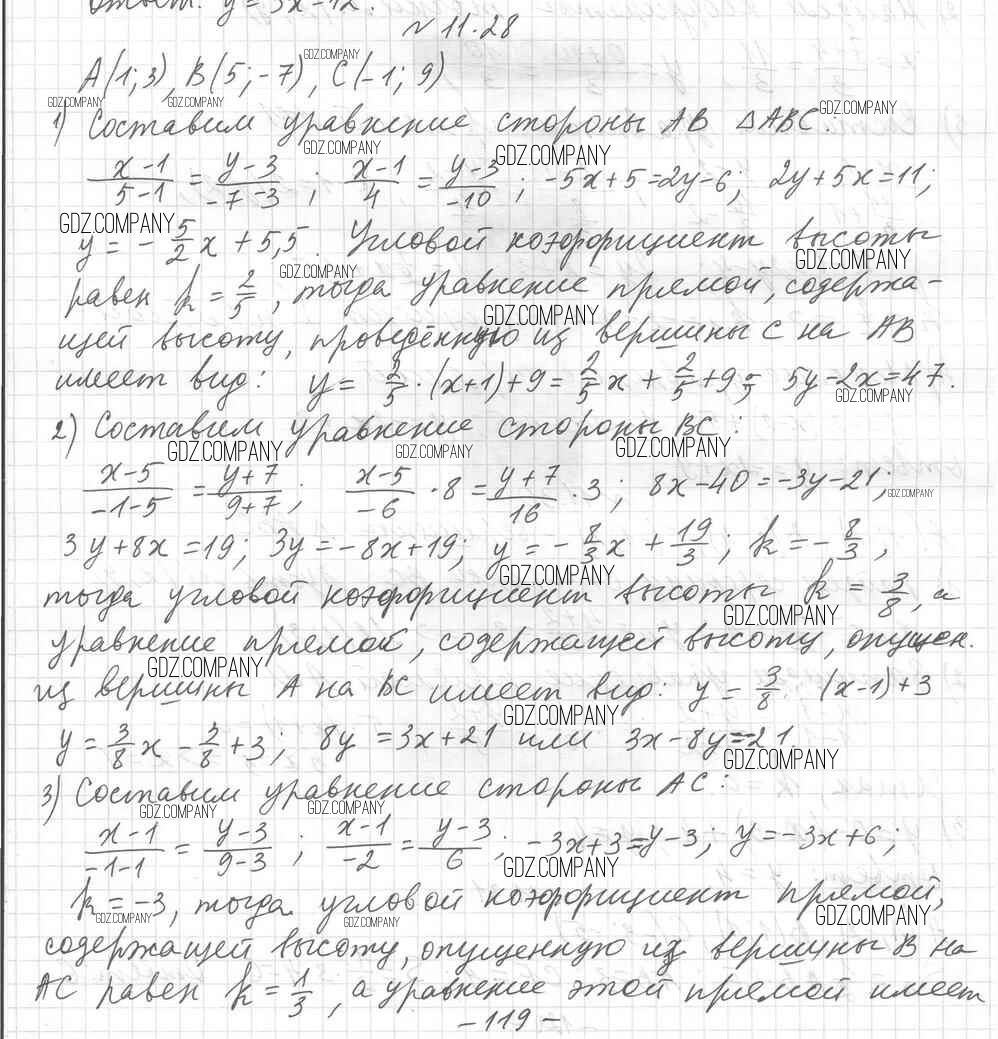 Ответ: y = 3x - 12.
№ 11.28
A(1; 3), B(5; -7), C(-1; 9)
1) Составим уравнение стороны AB ΔABC:
(x-1)/(5-1) = (y-3)/(-7-3); (x-1)/4 = (y-3)/(-10); -5x+5=2y-6; 2y+5x=11;
y = -5/2 x + 5,5. Угловой коэффициент высоты
равен k = 2/5, тогда уравнение прямой, содержа-
щей высоту, проведённую из вершины C на AB
имеет вид: y = 2/5 · (x+1)+9 = 2/5 x + 2/5 + 9; 5y-2x=47.
2) Составим уравнение стороны BC:
(x-5)/(-1-5) = (y+7)/(9+7); (x-5)/(-6) · 8 = (y+7)/16 · 3; 8x-40=-3y-21;
3y+8x=19; 3y=-8x+19; y = -8/3 x + 19/3; k = -8/3,
тогда угловой коэффициент высоты k = 3/8, а
уравнение прямой, содержащей высоту, опущен.
из вершины A на BC имеет вид: y = 3/8 (x-1)+3
y = 3/8 x - 3/8 + 3; 8y = 3x+21 или 3x-8y=-21.
3) Составим уравнение стороны AC:
(x-1)/(-1-1) = (y-3)/(9-3); (x-1)/(-2) = (y-3)/6; -3x+3=y-3; y=-3x+6;
k = -3, тогда угловой коэффициент прямой,
содержащей высоту, опущенную из вершины B на
AC равен k = 1/3, а уравнение этой прямой имеет
-119-
GDZ.COMPANY